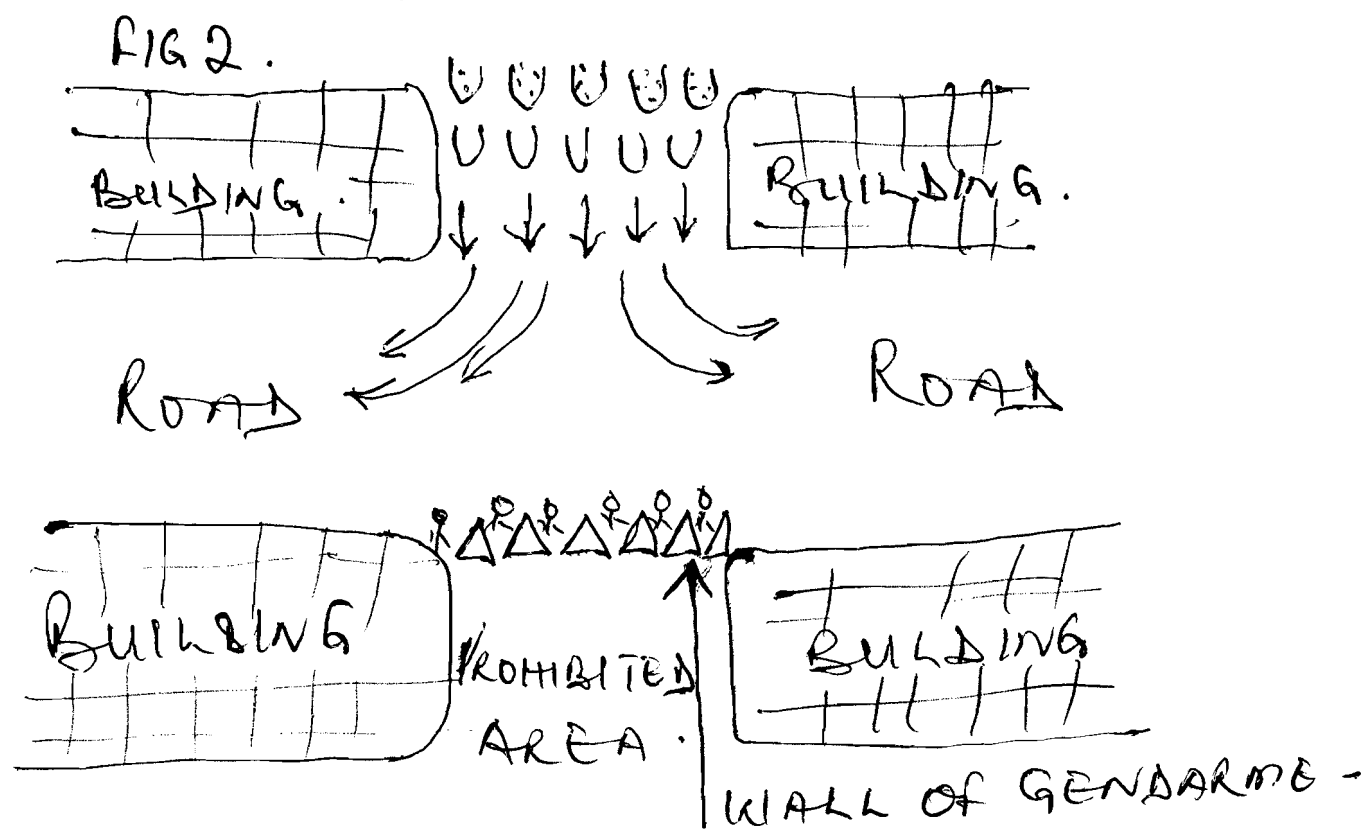 FIG 2.
BUILDING.
BUILDING.
ROAD
ROAD
BUILDING
PROHIBITED
AREA.
BUILDING
WALL OF GENDARME -